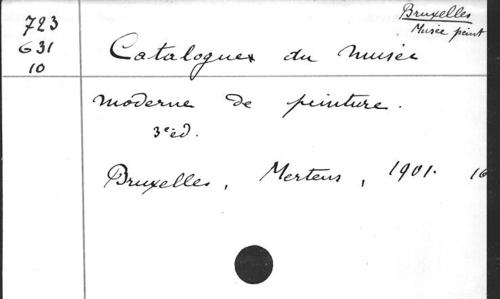 Bruxelles
Musée peint
723
G31
10
Catalogues du Musée
moderne de peinture.
3e éd.
Bruxelles, Mertens, 1901. 16